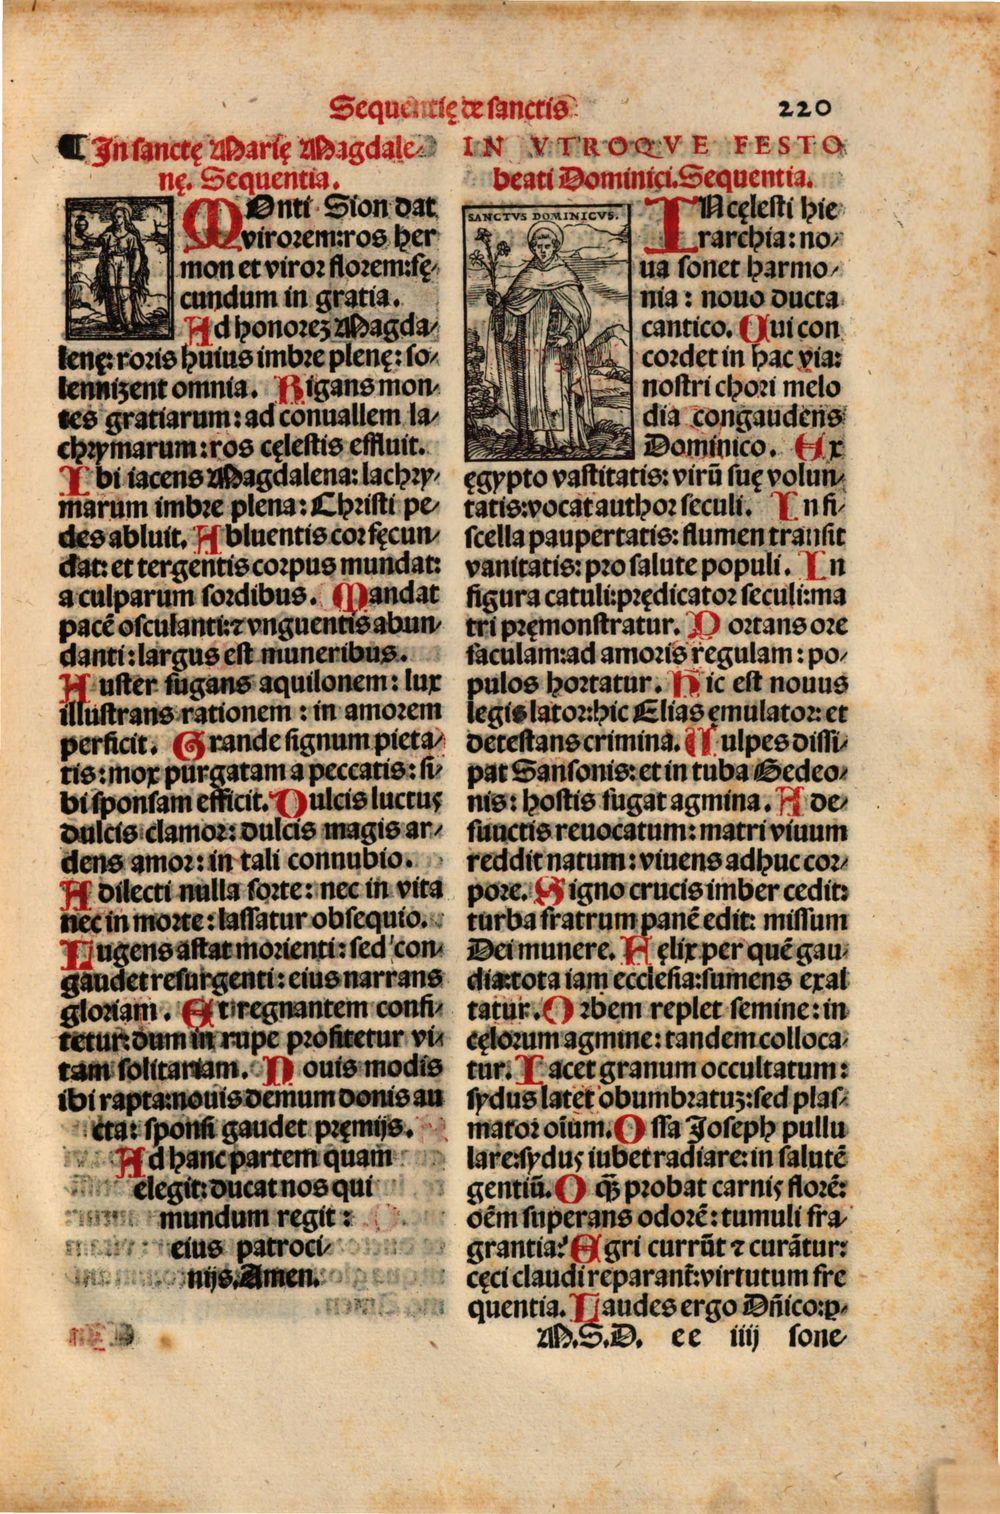 Sequentię de sanctis
220
¶ In sanctę Marię Magdale-
nę. Sequentia.
MOnti Sion dat
virorem: ros her
mon et viror florem: fę-
cundum in gratia.
Ad honorez Magda-
lenę: roris huius imbre plenę: so-
lennizent omnia. Rigans mon-
tes gratiarum: ad conuallem la-
chrymarum: ros cęlestis effluit.
Ibi iacens Magdalena: lachry-
marum imbre plena: Christi pe-
des abluit. Abluentis cor fęcun-
dat: et tergentis corpus mundat:
a culparum sordibus. Mandat
pacē osculanti: ⁊ vnguentis abun-
danti: largus est muneribus.
Auster fugans aquilonem: lux
illustrans rationem: in amorem
perficit. Grande signum pieta-
tis: mox purgatam a peccatis: si-
bi sponsam efficit. Dulcis luctus
dulcis clamor: dulcis magis ar-
dens amor: in tali connubio.
A dilecti nulla sorte: nec in vita
nec in morte: lassatur obsequio.
Lugens astat morienti: sed con-
gaudet resurgenti: eius narrans
gloriam. Et regnantem confi-
tetur: dum in rupe profitetur vi-
tam solitariam. Nouis modis
ibi rapta: nouis demum donis au
cta: sponsi gaudet pręmijs.
Ad hanc partem quam
elegit: ducat nos qui
mundum regit:
eius patroci-
nijs. Amen.
IN VTROQVE FESTO
beati Dominici. Sequentia.
SANCTVS DOMINICVS.
IN cęlesti hie
rarchia: no-
ua sonet harmo-
nia: nouo ducta
cantico. Qui con
cordet in hac via:
nostri chori melo
dia congaudens
Dominico. Ex
ęgypto vastitatis: virū suę volun-
tatis: vocat author seculi. In fi-
scella paupertatis: flumen transit
vanitatis: pro salute populi. In
figura catuli: prędicator seculi: ma
tri pręmonstratur. Portans ore
faculam: ad amoris regulam: po-
pulos hortatur. Hic est nouus
legislator: hic Elias ęmulator: et
detestans crimina. Vulpes dissi-
pat Sansonis: et in tuba Gedeo-
nis: hostis fugat agmina. A de-
functis reuocatum: matri viuum
reddit natum: viuens adhuc cor-
pore. Signo crucis imber cedit:
turba fratrum panē edit: missum
Dei munere. Fęlix per quē gau-
dia: tota iam ecclesia: sumens exal
tatur. Orbem replet semine: in
cęlorum agmine: tandem colloca-
tur. Iacet granum occultatum:
sydus latet obumbratuz: sed plas-
mator oīum. Ossa Joseph pullu
lare: sydus iubet radiare: in salutē
gentiū. O q̄ꝫ probat carnis florē:
oēm superans odorē: tumuli fra-
grantia: Egri currūt ⁊ curātur:
cęci claudi reparant̄: virtutum fre
quentia. Laudes ergo Dn̄ico: ꝑ-
M.S.D. ee iiij sone-